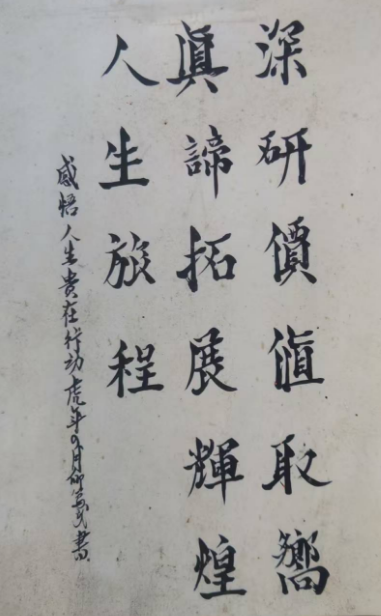 深研價值取嚮
眞諦拓展輝煌
人生旅程
感悟人生貴在行动虎年月書